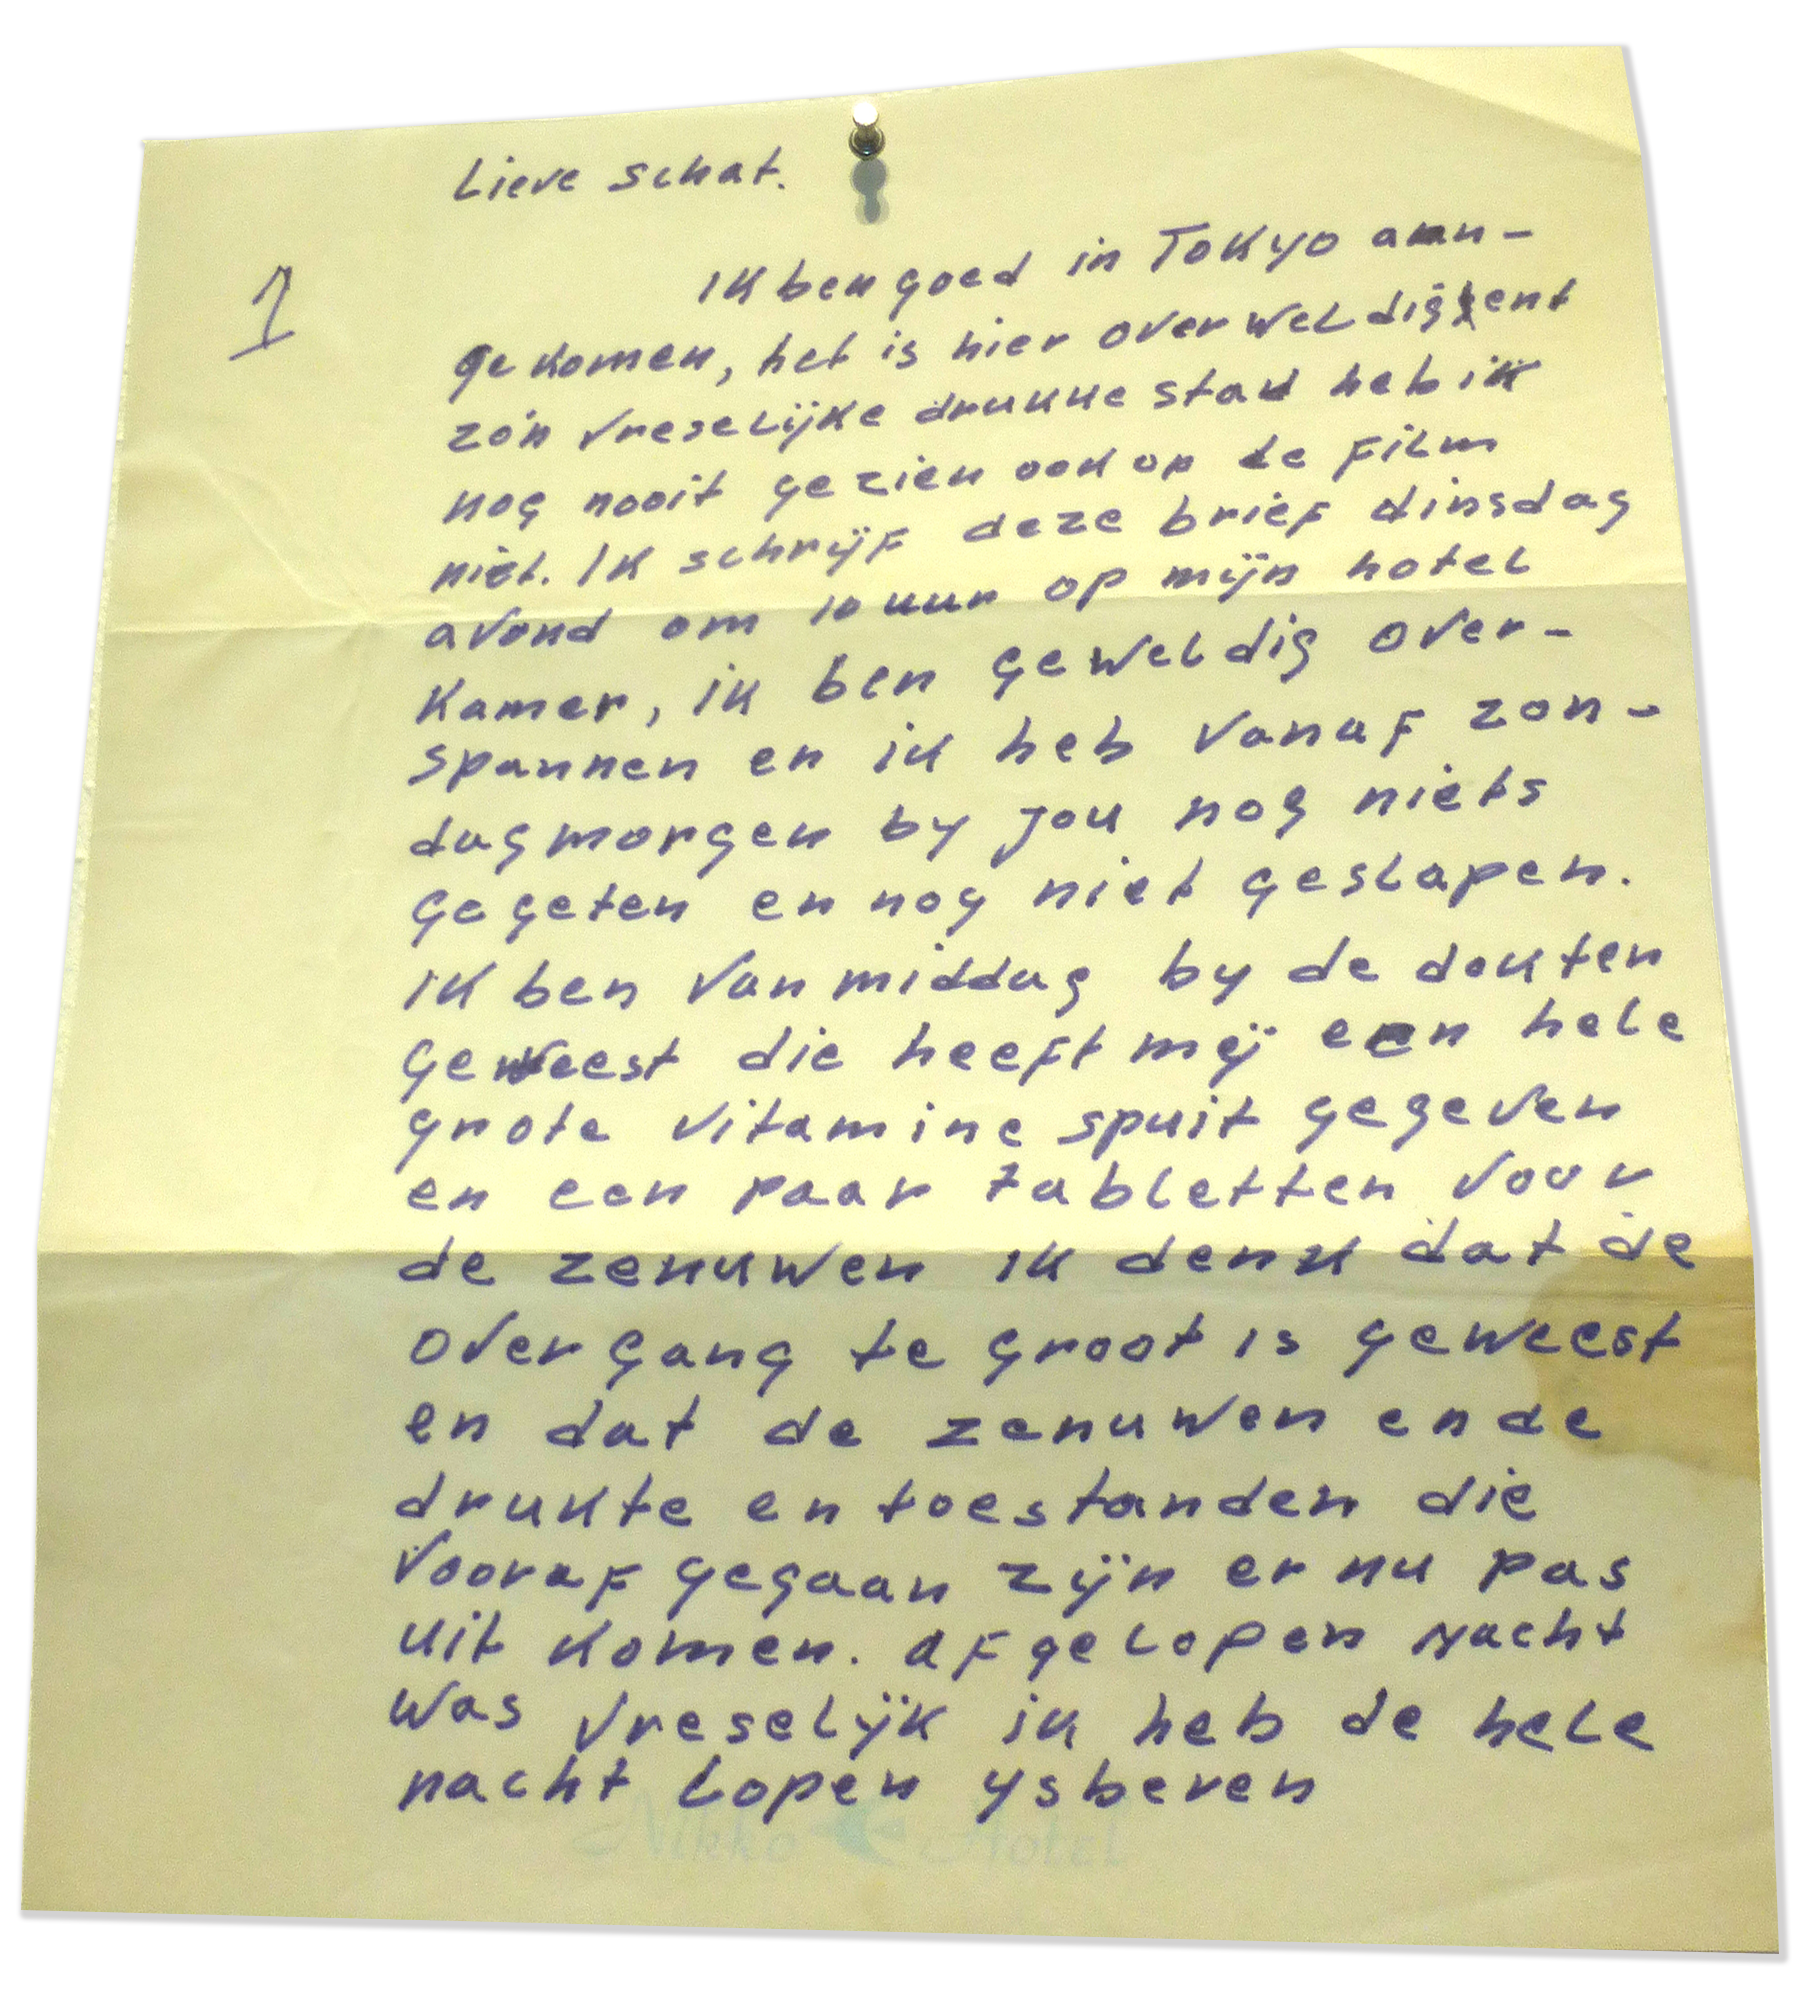 Lieve schat.
1
Ik ben goed in Tokyo aan-
gekomen, het is hier overweldigent
zo'n vreselijke drukke stad heb ik
nog nooit gezien ook op de film
niet. Ik schrijf deze brief dinsdag
avond om 10 uur op mijn hotel
kamer, ik ben geweldig over-
spannen en ik heb vanaf zon-
dagmorgen by jou nog niets
gegeten en nog niet geslapen.
ik ben vanmiddag by de dokter
geweest die heeft mij een hele
grote vitamine spuit gegeven
en een paar tabletten voor
de zenuwen ik denk dat de
overgang te groot is geweest
en dat de zenuwen en de
drukte en toestanden die
vooraf gegaan zijn er nu pas
uit komen. afgelopen nacht
was vreselijk ik heb de hele
nacht lopen ysberen
Nikko Hotel